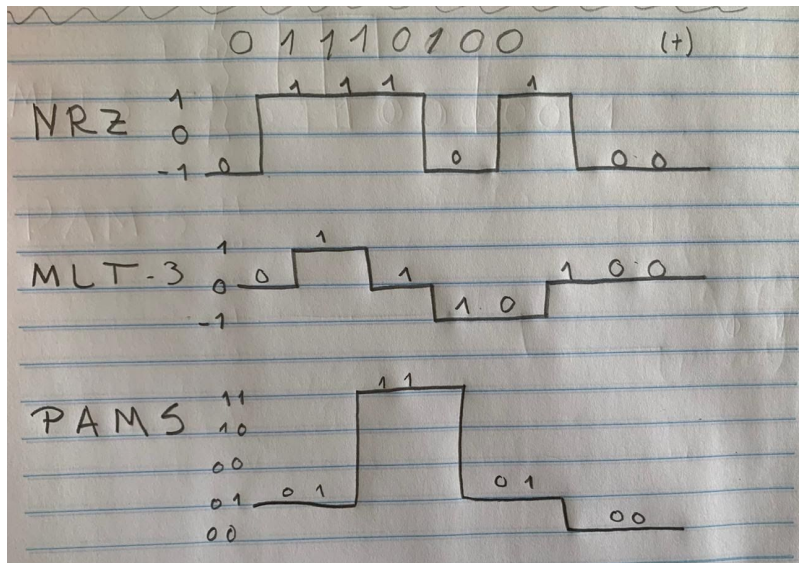 0 1 1 1 0 1 0 0 (+)
NRZ
1
0
-1
0 1 1 1 0 1 0 0
MLT-3
1
0
-1
0 1 1 1 0 1 0 0
PAM5
11
10
00
01
00
0 1 1 1 0 1 0 0